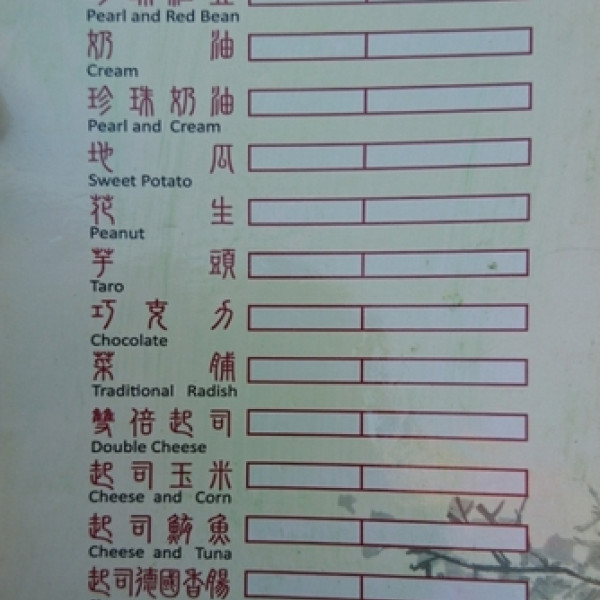 Pearl and Red Bean
奶油
Cream
珍珠奶油
Pearl and Cream
地瓜
Sweet Potato
花生
Peanut
芋頭
Taro
巧克力
Chocolate
菜脯
Traditional Radish
雙倍起司
Double Cheese
起司玉米
Cheese and Corn
起司鮪魚
Cheese and Tuna
起司德國香腸